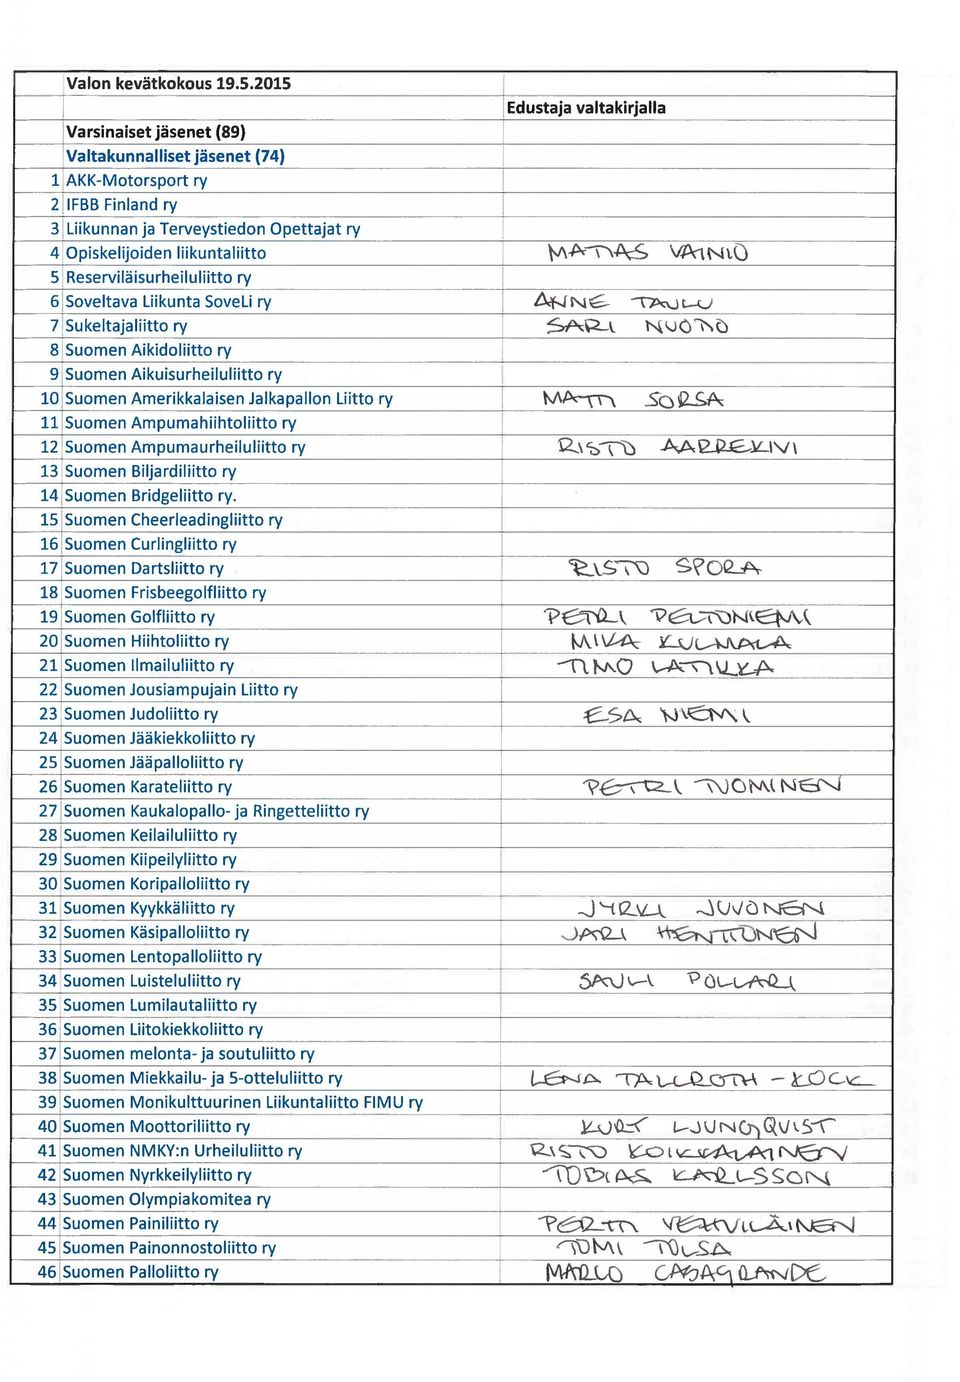 Valon kevätkokous 19.5.2015
Edustaja valtakirjalla
Varsinaiset jäsenet (89)
Valtakunnalliset jäsenet (74)
1 AKK-Motorsport ry
2 IFBB Finland ry
3 Liikunnan ja Terveystiedon Opettajat ry
4 Opiskelijoiden liikuntaliitto MATIAS VAINIO
5 Reserviläisurheiluliitto ry
6 Soveltava Liikunta SoveLi ry ANNE TAULU
7 Sukeltajaliitto ry SARI NUOTIO
8 Suomen Aikidoliitto ry
9 Suomen Aikuisurheiluliitto ry
10 Suomen Amerikkalaisen Jalkapallon Liitto ry MATTI SORSA
11 Suomen Ampumahiihtoliitto ry
12 Suomen Ampumaurheiluliitto ry RISTO AARREKIVI
13 Suomen Biljardiliitto ry
14 Suomen Bridgeliitto ry.
15 Suomen Cheerleadingliitto ry
16 Suomen Curlingliitto ry
17 Suomen Dartsliitto ry RISTO SPORA
18 Suomen Frisbeegolfliitto ry
19 Suomen Golfliitto ry PETRI PELTONIEMI
20 Suomen Hiihtoliitto ry MIKA KULMALA
21 Suomen Ilmailuliitto ry TIMO LATIKKA
22 Suomen Jousiampujain Liitto ry
23 Suomen Judoliitto ry ESA NIEMI
24 Suomen Jääkiekkoliitto ry
25 Suomen Jääpalloliitto ry
26 Suomen Karateliitto ry PETRI TUOMINEN
27 Suomen Kaukalopallo- ja Ringetteliitto ry
28 Suomen Keilailuliitto ry
29 Suomen Kiipeilyliitto ry
30 Suomen Koripalloliitto ry
31 Suomen Kyykkäliitto ry JYRKI JUVONEN
32 Suomen Käsipalloliitto ry JARI HENTTONEN
33 Suomen Lentopalloliitto ry
34 Suomen Luisteluliitto ry SAULI POLLARI
35 Suomen Lumilautaliitto ry
36 Suomen Liitokiekkoliitto ry
37 Suomen melonta- ja soutuliitto ry
38 Suomen Miekkailu- ja 5-otteluliitto ry LENA TALLROTH - KOCK
39 Suomen Monikulttuurinen Liikuntaliitto FIMU ry
40 Suomen Moottoriliitto ry KURT LJUNGQVIST
41 Suomen NMKY:n Urheiluliitto ry RISTO KOIKKALAINEN
42 Suomen Nyrkkeilyliitto ry TOBIAS KARLSSON
43 Suomen Olympiakomitea ry
44 Suomen Painiliitto ry PERTTI VEHVILÄINEN
45 Suomen Painonnostoliitto ry TOMI TOLSA
46 Suomen Palloliitto ry MARCO CASAGRANDE